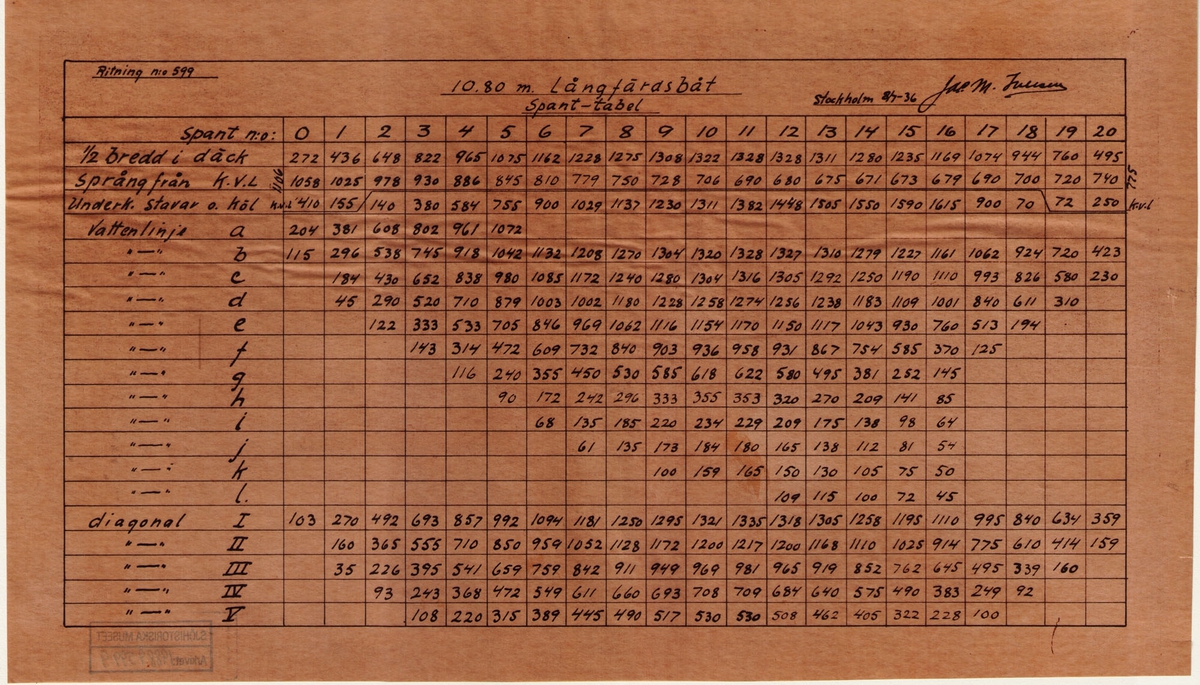 Ritning n:o 599
10.80 m. Långfärdsbåt
Spant-tabel
Stockholm 8/7-36 Jac. M. Iversen
Spant n:o: 0 1 2 3 4 5 6 7 8 9 10 11 12 13 14 15 16 17 18 19 20
1/2 bredd i däck 272 436 648 822 965 1075 1162 1228 1275 1308 1322 1328 1328 1311 1280 1235 1169 1074 944 760 495
Språng från K.V.L 1106 1058 1025 978 930 886 845 810 779 750 728 706 690 680 675 671 673 679 690 700 720 740 775
Underk. Stavar o. Köl K.v.L 410 155 140 380 584 755 900 1029 1137 1230 1311 1382 1448 1505 1550 1590 1615 900 70 72 250 K.v.l
Vattenlinje a 204 381 608 802 961 1072
"—" b 115 296 538 745 918 1042 1132 1208 1270 1304 1320 1328 1327 1310 1279 1227 1161 1062 924 720 423
"—" c 184 430 652 838 980 1085 1172 1240 1280 1304 1316 1305 1292 1250 1190 1110 993 826 580 230
"—" d 45 290 520 710 879 1003 1002 1180 1228 1258 1274 1256 1238 1183 1109 1001 840 611 310
"—" e 122 333 533 705 846 969 1062 1116 1154 1170 1150 1117 1043 930 760 513 194
"—" f 143 314 472 609 732 840 903 936 958 931 867 754 585 370 125
"—" g 116 240 355 450 530 585 618 622 580 495 381 252 145
"—" h 90 172 242 296 333 355 353 320 270 209 141 85
"—" i 68 135 185 220 234 229 209 175 138 98 64
"—" j 61 135 173 184 180 165 138 112 81 54
"—" k 100 159 165 150 130 105 75 50
"—" l. 109 115 100 72 45
diagonal I 103 270 492 693 857 992 1094 1181 1250 1295 1321 1335 1318 1305 1258 1195 1110 995 840 634 359
"—" II 160 365 555 710 850 959 1052 1128 1172 1200 1217 1200 1168 1110 1025 914 775 610 414 159
"—" III 35 226 395 541 659 759 842 911 949 969 981 965 919 852 762 645 495 339 160
"—" IV 93 243 368 472 549 611 660 693 708 709 684 640 575 490 383 249 92
"—" V 108 220 315 389 445 490 517 530 530 508 462 405 322 228 100
SJÖHISTORISKA MUSEET
Arkivet